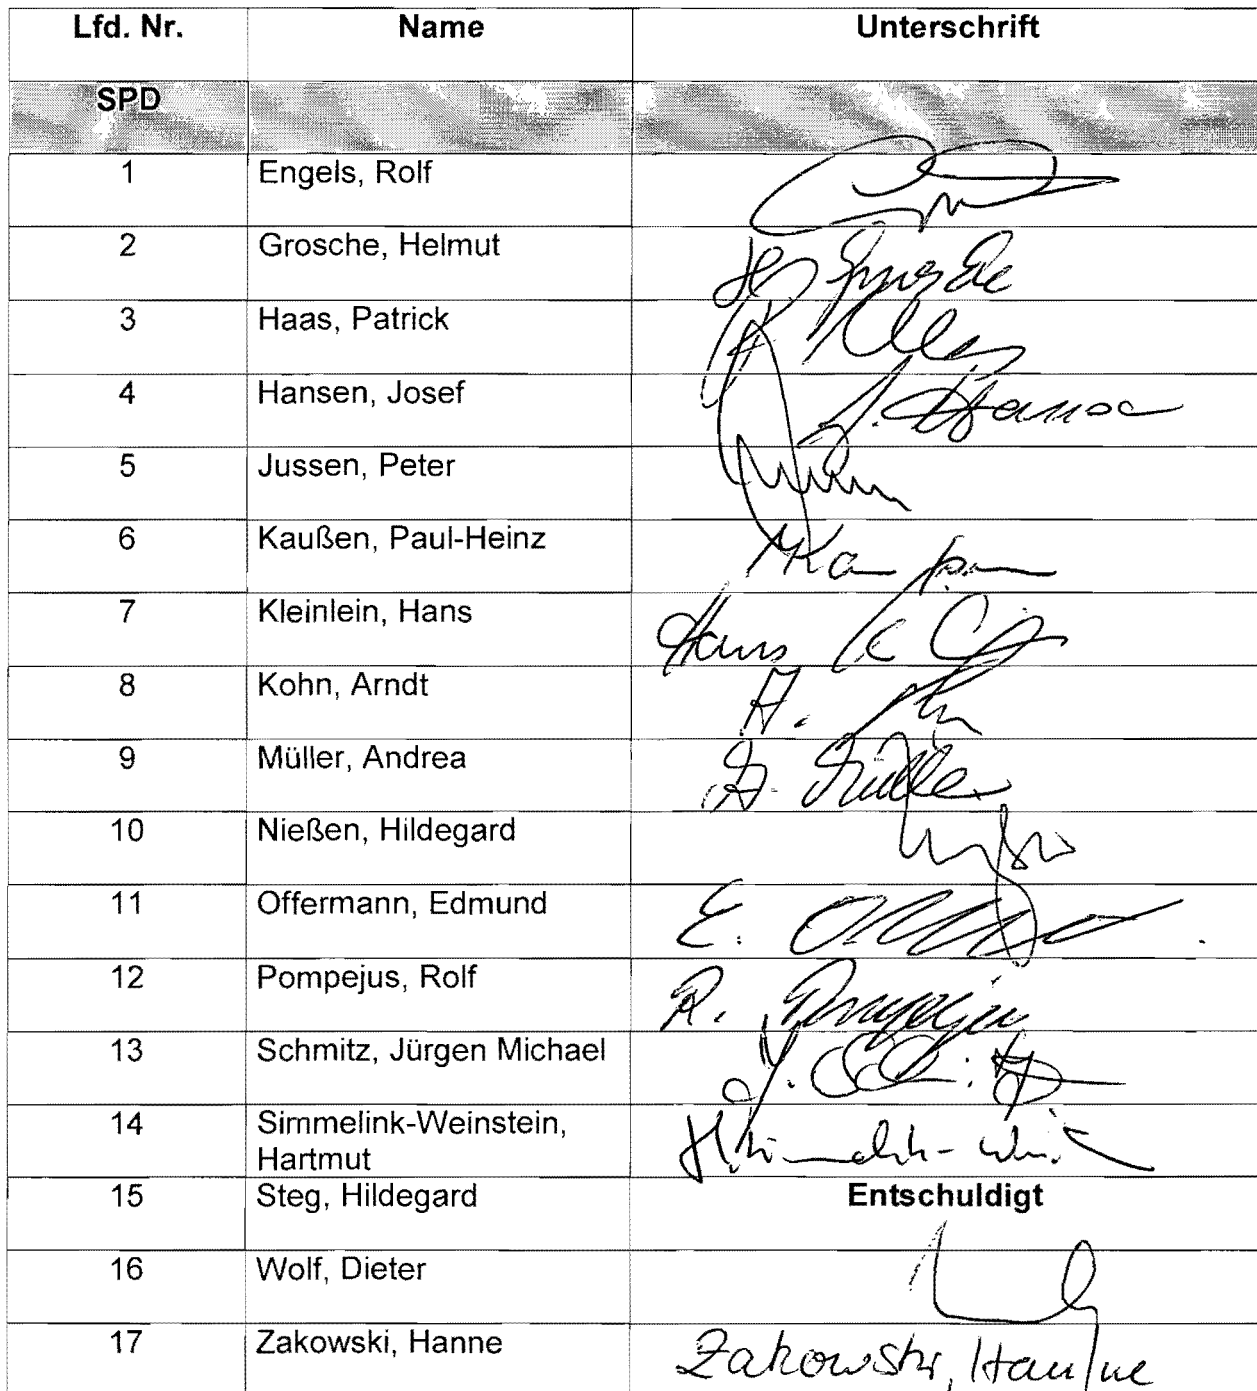 Lfd. Nr. Name Unterschrift
SPD
1 Engels, Rolf
2 Grosche, Helmut
3 Haas, Patrick
4 Hansen, Josef J. Hansen
5 Jussen, Peter
6 Kaußen, Paul-Heinz
7 Kleinlein, Hans Hans
8 Kohn, Arndt A.
9 Müller, Andrea A. Müller
10 Nießen, Hildegard
11 Offermann, Edmund E.
12 Pompejus, Rolf R. Pompejus
13 Schmitz, Jürgen Michael J. Schmitz
14 Simmelink-Weinstein,
Hartmut
15 Steg, Hildegard Entschuldigt
16 Wolf, Dieter
17 Zakowski, Hanne Zakowski, Hanne